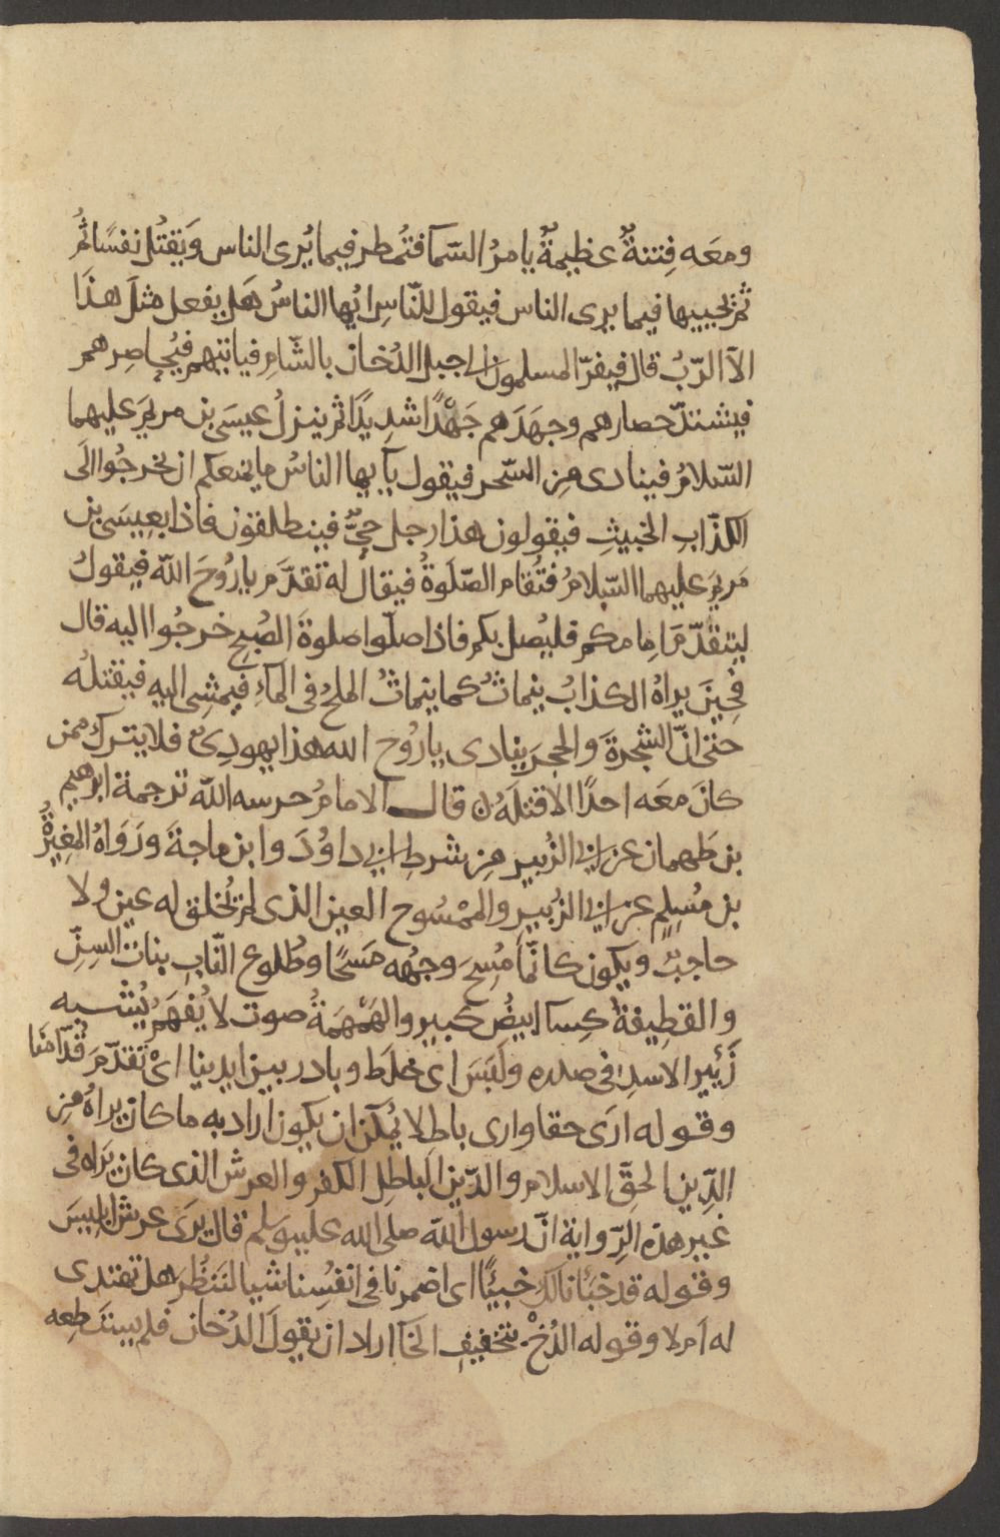 ومعَه فِتنةٌ عظيمةٌ يامرُ السّما فتُمطر فيما يُرى الناس وَيَقتُل نفسًا ثُمّ
ثم يحييها فيما يرى الناس فيقول للنّاسِ ايُّها الناسُ هَل يفعل مثلَ هذَا
الاّ الرّبُ قال فيفرّ المسلمون الى جبل الدُخان بالشّامِ فياتيهم فيُحاصِرهم
فيشتدّ حصارهم وجهَدَهم جَهْدًا شدِيدًا ثم ينزلُ عيسَى بن مريمَ عليهما
السّلامُ فينادى مِن السّحر فيقول يآيها الناسُ ما يمنعكم ان تخرجُوا الَى
الكذّابِ الخبيثِ فيقولون هذا رجل جنىٌّ فينطلقون فاذا بعِيسَى بن
مَريمَ عليهما السّلامُ فتُقام الصّلَوةُ فيقالُ له تقدّم يا رُوحَ اللّه فيقولُ
ليتقدّمَ اِمامكم فليُصل بكم فاذا صلّوا صلوةَ الصُبحِ خرجُوا اليه قال
فحِينَ يراهُ الكذابُ ينماثُ كما ينماثُ الملحُ فى المآءِ فيمشِى اليه فيقتلُه
حتى انّ الشجرةَ والحجرَ ينادى يا رُوح الله هذا يهودِىٌ فلا يترك ممن
كانَ معَه احدًا الا قتلَهُ قال الامامُ حرسه اللّه ترجمة ابرهيم
بن طَهمان عن ابى الزُبير مِن شرطِ ابى داوُدَ وابن ماجةَ ورَوَاهُ المغِيرَةُ
بن مُسلِمٍ عن ابى الزُبيرِ والممْسُوح العين الذى لم تُخلق له عين ولا
حاجبٌ ويكون كانّمَا مُسِحَ وجهُه مَسْحًا وطُلوع النّابِ بنات السِنّ
والقطِيفةُ كِسا ابيضُ كبير والهَمْهَمَةُ صوت لا يُفهَمُ يُشبه
زَئيرا لاسدِ فى صدره ولَبَسَ اى خلَط وبادر بين ايدينا اىْ تقدّمَ قُدّامَنا
وقوله ارَى حقا وارى باطلا يُمكن ان يكون اراد به ما كان يراهُ مِن
الدِّينِ الحقِّ الاسلام والدّين الباطِلِ الكفر والعرش الذى كان يَرَاه فى
غير هذه الرِّواية انّ رسول اللّه صلى الله عليه وسلم قال يرَى عرشَ ابليسَ
وقوله قد خبَأنا لكَ خبيئًا اى اضمرنا فى انفُسِنا شيا لنَنظُرَ هل تهتدى
له اَم لا وقوله الدُخْ بتخفيفِ الخآ اراد ان يقولَ الدُخان فلم يستَطِعه